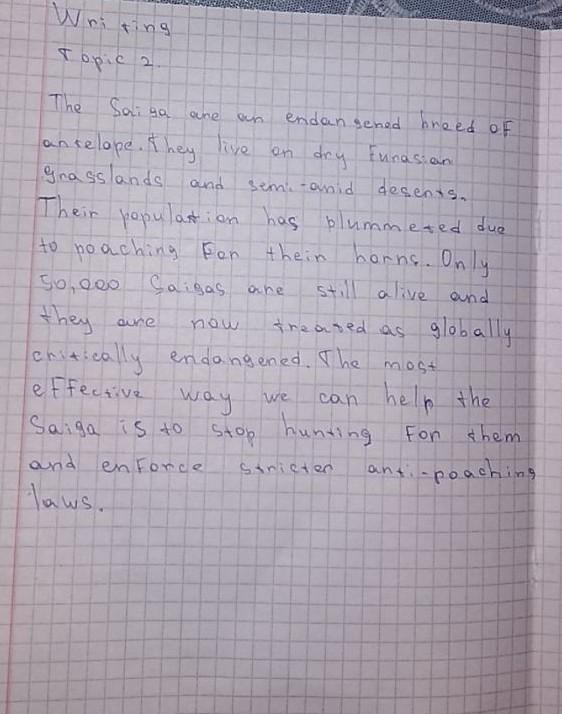 Writing
Topic 2.
The Saiga are an endangered breed of
antelope. They live on dry Eurasian
grasslands and semi-arid deserts.
Their population has plummeted due
to poaching For their horns. Only
50,000 Saigas are still alive and
they are now treated as globally
critically endangered. The most
effective way we can help the
Saiga is to stop hunting For them
and enforce stricter anti-poaching
laws.